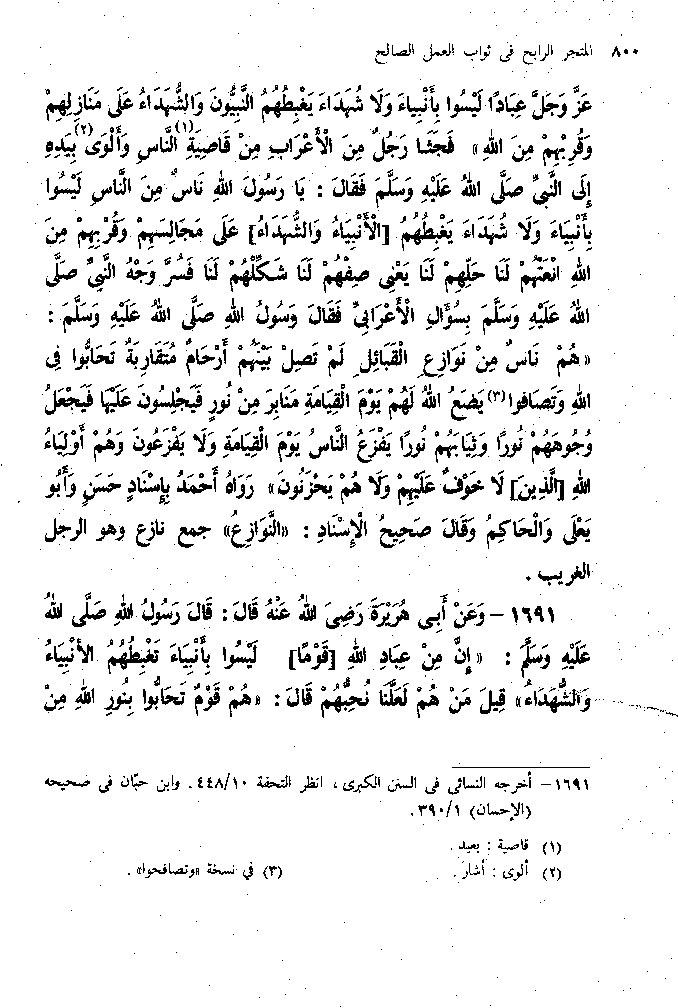 ٨٠٠ المتجر الرابح فى ثواب العمل الصالح
عَزَّ وَجَلَّ عِبَادًا لَيْسُوا بِأَنْبِيَاءَ وَلَا شُهَدَاءَ يَغْبِطُهُمُ النَّبِيُّونَ وَالشُّهَدَاءُ عَلَى مَنَازِلِهِمْ
وَقُرْبِهِمْ مِنَ اللهِ» فَجَثَا رَجُلٌ مِنَ الْأَعْرَابِ مِنْ قَاصِيَةِ(١) النَّاسِ وَأَلْوَى(٢) بِيَدِهِ
إِلَى النَّبِىِّ صَلَّى اللهُ عَلَيْهِ وَسَلَّمَ فَقَالَ : يَا رَسُولَ اللهِ نَاسٌ مِنَ النَّاسِ لَيْسُوا
بِأَنْبِيَاءَ وَلَا شُهَدَاءَ يَغْبِطُهُمُ [الْأَنْبِيَاءُ وَالشُّهَدَاءُ] عَلَى مَجَالِسِهِمْ وَقُرْبِهِمْ مِنَ
اللهِ انْعَتْهُمْ لَنَا حَلِّهِمْ لَنَا يَعْنِى صِفْهُمْ لَنَا شَكِّلْهُمْ لَنَا فَسُرَّ وَجْهُ النَّبِىِّ صَلَّى
اللهُ عَلَيْهِ وَسَلَّمَ بِسُؤَالِ الْأَعْرَابِىِّ فَقَالَ رَسُولُ اللهِ صَلَّى اللهُ عَلَيْهِ وَسَلَّمَ :
«هُمْ نَاسٌ مِنْ نَوَازِعِ الْقَبَائِلِ لَمْ تَصِلْ بَيْنَهُمْ أَرْحَامٌ مُتَقَارِبَةٌ تَحَابُّوا فِى
اللهِ وَتَصَافَوا(٣) يَضَعُ اللهُ لَهُمْ يَوْمَ الْقِيَامَةِ مَنَابِرَ مِنْ نُورٍ فَيَجْلِسُونَ عَلَيْهَا فَيَجْعَلُ
وُجُوهَهُمْ نُورًا وَثِيَابَهُمْ نُورًا يَفْزَعُ النَّاسُ يَوْمَ الْقِيَامَةِ وَلَا يَفْزَعُونَ وَهُمْ أَوْلِيَاءُ
اللهِ [الَّذِينَ] لَا خَوْفٌ عَلَيْهِمْ وَلَا هُمْ يَحْزَنُونَ» رَوَاهُ أَحْمَدُ بِإِسْنَادٍ حَسَنٍ وَأَبُو
يَعْلَى وَالْحَاكِمُ وَقَالَ صَحِيحُ الْإِسْنَادِ : «النَّوَازِعُ» جمع نازع وهو الرجل
الغريب .
١٦٩١ – وَعَنْ أَبِى هُرَيْرَةَ رَضِىَ اللهُ عَنْهُ قَالَ : قَالَ رَسُولُ اللهِ صَلَّى اللهُ
عَلَيْهِ وَسَلَّمَ : «إِنَّ مِنْ عِبَادِ اللهِ [قَوْمًا] لَيْسُوا بِأَنْبِيَاءَ تَغْبِطُهُمُ الْأَنْبِيَاءُ
وَالشُّهَدَاءُ» قِيلَ مَنْ هُمْ لَعَلَّنَا نُحِبُّهُمْ قَالَ : «هُمْ قَوْمٌ تَحَابُّوا بِنُورِ اللهِ مِنْ
١٦٩١ – أخرجه النسائى فى السنن الكبرى ، انظر التحفة ٤٤٨/١٠ . وابن حبّان فى صحيحه
(الإحسان) ٣٩٠/١ .
(١) قاصية : بعيد .
(٢) ألوى : أشار . (٣) فى نسخة «وتصافحوا» .